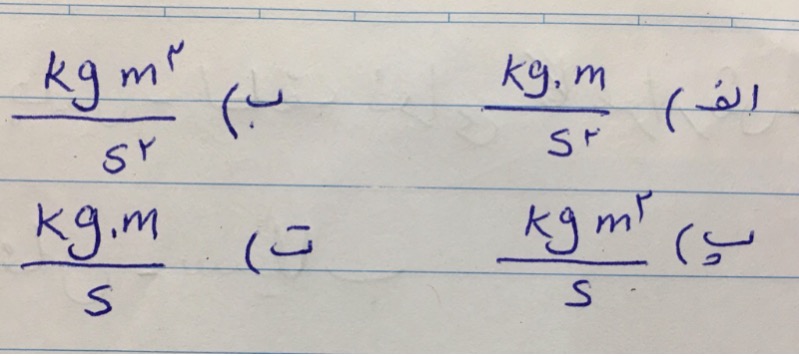 الف) kg.m / s۲ ب) kg m۲ / s۲
پ) kg m۲ / s ت) kg.m / s